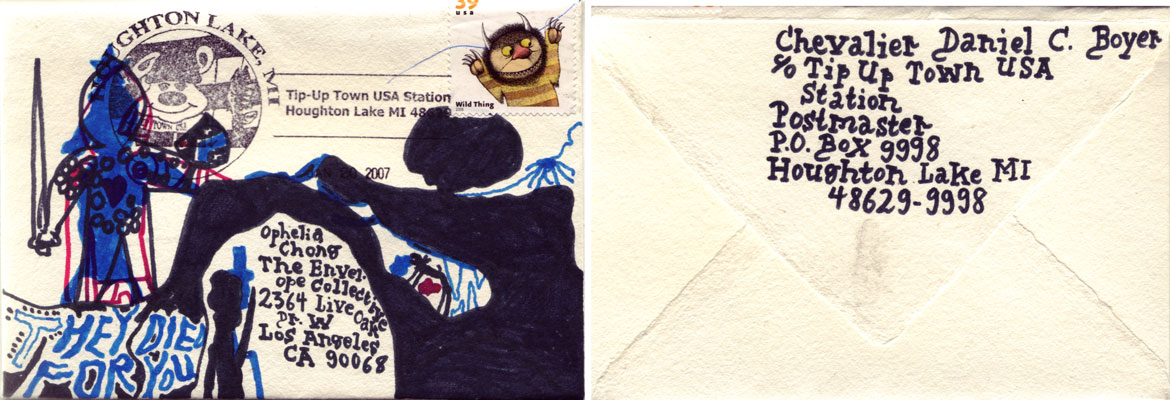 HOUGHTON LAKE, MI
TOWN USA
39
usa
Wild Thing
Tip-Up Town USA Station
Houghton Lake MI 48629
JAN 20 2007
Ophelia
Chong
The Envel-
ope Collective
2364 Live Oak
Dr. W
Los Angeles
CA 90068
THEY DIED
FOR YOU
Chevalier Daniel C. Boyer
c/o Tip Up Town USA
Station
Postmaster
P.O. Box 9998
Houghton Lake MI
48629-9998